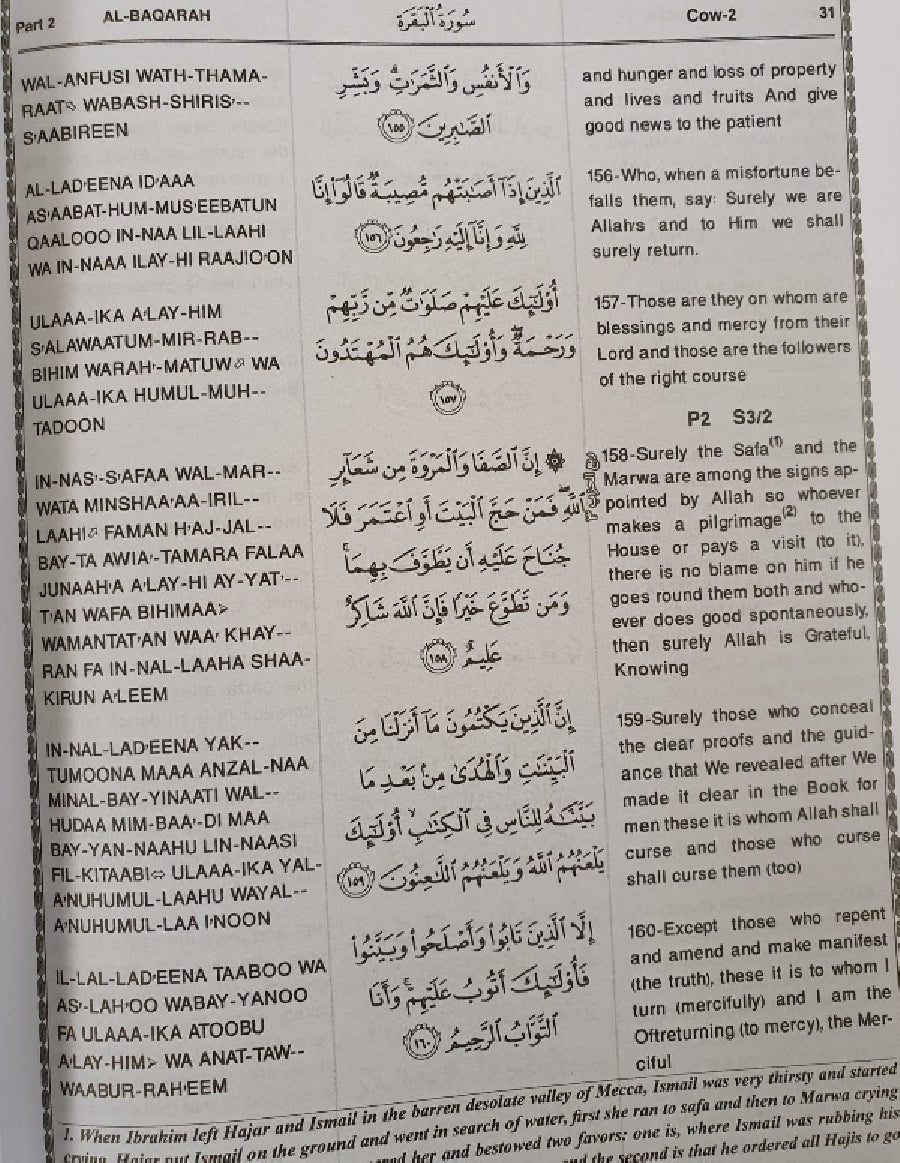 Part 2 AL-BAQARAH سُورَةُ الْبَقَرَةِ Cow-2 31
WAL-ANFUSI WATH-THAMA-
RAAT⇔ WABASH-SHIRIS'--
S'AABIREEN
وَٱلْأَنفُسِ وَٱلثَّمَرَٰتِ ۗ وَبَشِّرِ
ٱلصَّـٰبِرِينَ ١٥٥
and hunger and loss of property
and lives and fruits And give
good news to the patient
AL-LAD'EENA ID'AAA
AS'AABAT-HUM-MUS'EEBATUN
QAALOOO IN-NAA LIL-LAAHI
WA IN-NAAA ILAY-HI RAAJIO'ON
ٱلَّذِينَ إِذَآ أَصَـٰبَتْهُم مُّصِيبَةٌ قَالُوٓا۟ إِنَّا
لِلَّهِ وَإِنَّآ إِلَيْهِ رَٰجِعُونَ ١٥٦
156-Who, when a misfortune be-
falls them, say: Surely we are
Allah's and to Him we shall
surely return.
ULAAA-IKA A'LAY-HIM
S'ALAWAATUM-MIR-RAB--
BIHIM WARAH'-MATUW⇔ WA
ULAAA-IKA HUMUL-MUH--
TADOON
أُو۟لَـٰٓئِكَ عَلَيْهِمْ صَلَوَٰتٌ مِّن رَّبِّهِمْ
وَرَحْمَةٌ ۖ وَأُو۟لَـٰٓئِكَ هُمُ ٱلْمُهْتَدُونَ
١٥٧
157-Those are they on whom are
blessings and mercy from their
Lord and those are the followers
of the right course
P2 S3/2
IN-NAS'-S'AFAA WAL-MAR--
WATA MINSHAA'AA-IRIL--
LAAHI⇔ FAMAN H'AJ-JAL--
BAY-TA AWIA'-TAMARA FALAA
JUNAAH'A A'LAY-HI AY-YAT'--
T'AN WAFA BIHIMAA>
WAMANTAT'AN WAA' KHAY--
RAN FA IN-NAL-LAAHA SHAA-
KIRUN A'LEEM
۞ إِنَّ ٱلصَّفَا وَٱلْمَرْوَةَ مِن شَعَآئِرِ
ٱللَّهِ ۖ فَمَنْ حَجَّ ٱلْبَيْتَ أَوِ ٱعْتَمَرَ فَلَا
جُنَاحَ عَلَيْهِ أَن يَطَّوَّفَ بِهِمَا ۚ
وَمَن تَطَوَّعَ خَيْرًا فَإِنَّ ٱللَّهَ شَاكِرٌ
عَلِيمٌ ١٥٨
158-Surely the Safa(1) and the
Marwa are among the signs ap-
pointed by Allah so whoever
makes a pilgrimage(2) to the
House or pays a visit (to it),
there is no blame on him if he
goes round them both and who-
ever does good spontaneously,
then surely Allah is Grateful,
Knowing
IN-NAL-LAD'EENA YAK--
TUMOONA MAAA ANZAL-NAA
MINAL-BAY-YINAATI WAL--
HUDAA MIM-BAA'-DI MAA
BAY-YAN-NAAHU LIN-NAASI
FIL-KITAABI⇔ ULAAA-IKA YAL-
A'NUHUMUL-LAAHU WAYAL--
A'NUHUMUL-LAA I'NOON
إِنَّ ٱلَّذِينَ يَكْتُمُونَ مَآ أَنزَلْنَا مِنَ
ٱلْبَيِّنَـٰتِ وَٱلْهُدَىٰ مِنۢ بَعْدِ مَا
بَيَّنَّـٰهُ لِلنَّاسِ فِى ٱلْكِتَـٰبِ ۙ أُو۟لَـٰٓئِكَ
يَلْعَنُهُمُ ٱللَّهُ وَيَلْعَنُهُمُ ٱللَّـٰعِنُونَ ١٥٩
159-Surely those who conceal
the clear proofs and the guid-
ance that We revealed after We
made it clear in the Book for
men these it is whom Allah shall
curse and those who curse
shall curse them (too)
IL-LAL-LAD'EENA TAABOO WA
AS'-LAH'OO WABAY-YANOO
FA ULAAA-IKA ATOOBU
A'LAY-HIM> WA ANAT-TAW--
WAABUR-RAH'EEM
إِلَّا ٱلَّذِينَ تَابُوا۟ وَأَصْلَحُوا۟ وَبَيَّنُوا۟
فَأُو۟لَـٰٓئِكَ أَتُوبُ عَلَيْهِمْ ۚ وَأَنَا
ٱلتَّوَّابُ ٱلرَّحِيمُ ١٦٠
160-Except those who repent
and amend and make manifest
(the truth), these it is to whom I
turn (mercifully) and I am the
Oftreturning (to mercy), the Mer-
ciful
1. When Ibrahim left Hajar and Ismail in the barren desolate valley of Mecca, Ismail was very thirsty and started
crying. Hajar put Ismail on the ground and went in search of water, first she ran to safa and then to Marwa crying
her and bestowed two favors: one is, where Ismail was rubbing his
and the second is that he ordered all Hajis to go